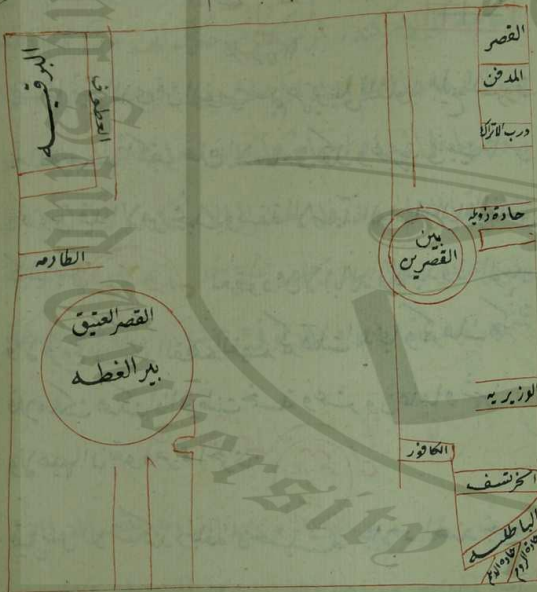 القصر
المدفن
درب الاتراك
حادة زويله
بين
القصرين
الوزيريه
الكافور
الخرنشف
الباطليه
حادة الروم
البرقيه
العطوف
الطارمه
القصر العتيق
بير الغطه
University